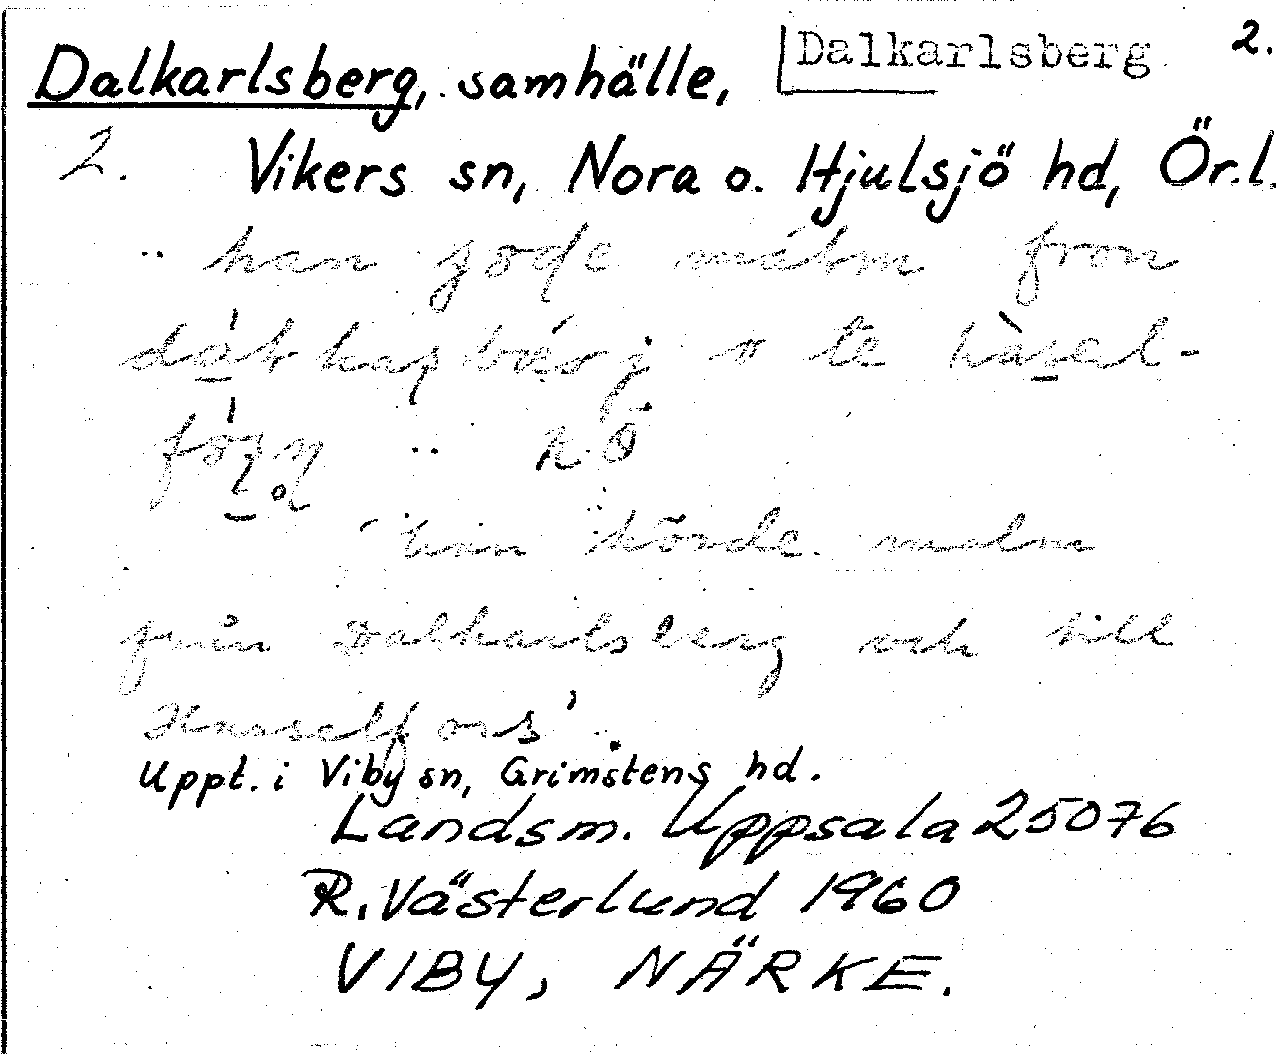 Dalkarlsberg, samhälle, Dalkarlsberg 2.
2. Vikers sn, Nora o. Hjulsjö hd, Ör.l.
.. han
te
.. K.Ö
'han körde malm
från Dalkarlsberg och till
Hasselfors'.
Uppt. i Viby sn, Grimstens hd.
Landsm. Uppsala 25076
R. Västerlund 1960
VIBY, NÄRKE.